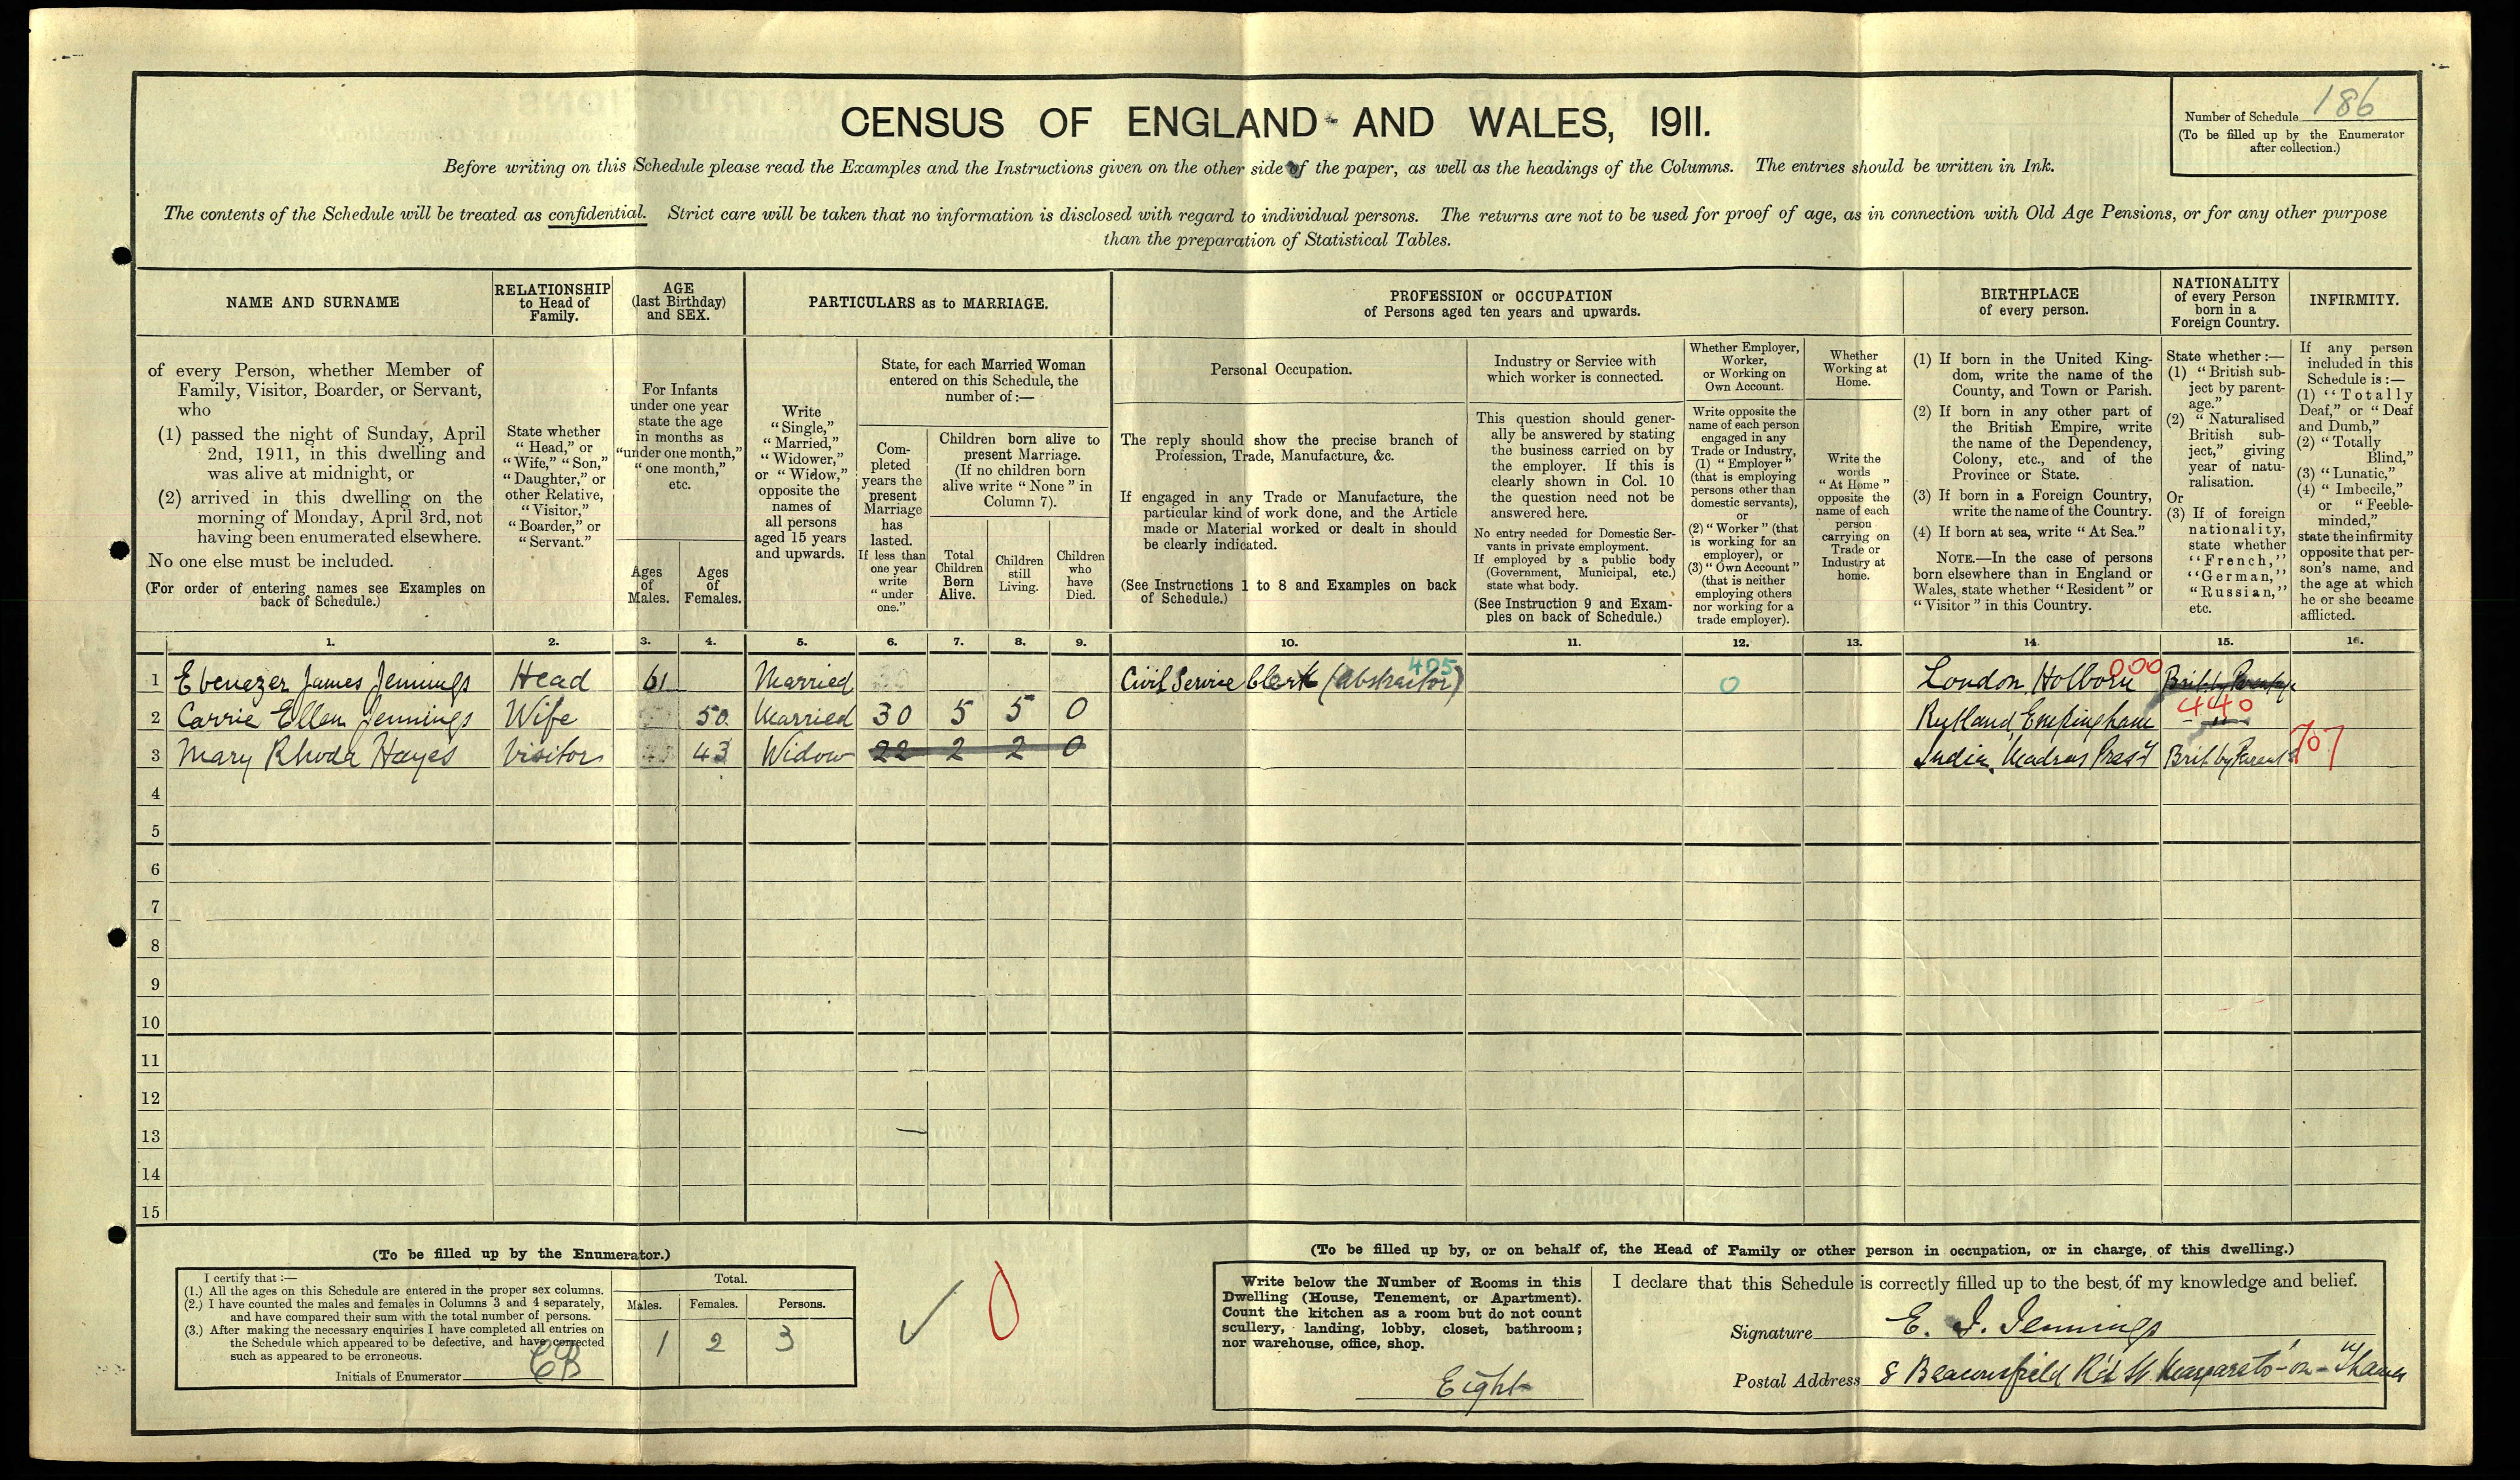 CENSUS OF ENGLAND AND WALES, 1911.
Number of Schedule 186
(To be filled up by the Enumerator
after collection.)
Before writing on this Schedule please read the Examples and the Instructions given on the other side of the paper, as well as the headings of the Columns. The entries should be written in Ink.
The contents of the Schedule will be treated as confidential. Strict care will be taken that no information is disclosed with regard to individual persons. The returns are not to be used for proof of age, as in connection with Old Age Pensions, or for any other purpose
than the preparation of Statistical Tables.
NAME AND SURNAME
of every Person, whether Member of
Family, Visitor, Boarder, or Servant,
who
(1) passed the night of Sunday, April
2nd, 1911, in this dwelling and
was alive at midnight, or
(2) arrived in this dwelling on the
morning of Monday, April 3rd, not
having been enumerated elsewhere.
No one else must be included.
(For order of entering names see Examples on
back of Schedule.)
RELATIONSHIP
to Head of
Family.
State whether
"Head," or
"Wife," "Son,"
"Daughter," or
other Relative,
"Visitor,"
"Boarder," or
"Servant."
AGE
(last Birthday)
and SEX.
For Infants
under one year
state the age
in months as
"under one month,"
"one month,"
etc.
Ages
of
Males.
Ages
of
Females.
PARTICULARS as to MARRIAGE.
Write
"Single,"
"Married,"
"Widower,"
or "Widow,"
opposite the
names of
all persons
aged 15 years
and upwards.
State, for each Married Woman
entered on this Schedule, the
number of :—
Com-
pleted
years the
present
Marriage
has
lasted.
If less than
one year
write
"under
one."
Children born alive to
present Marriage.
(If no children born
alive write "None" in
Column 7).
Total
Children
Born
Alive.
Children
still
Living.
Children
who
have
Died.
PROFESSION or OCCUPATION
of Persons aged ten years and upwards.
Personal Occupation.
The reply should show the precise branch of
Profession, Trade, Manufacture, &c.
If engaged in any Trade or Manufacture, the
particular kind of work done, and the Article
made or Material worked or dealt in should
be clearly indicated.
(See Instructions 1 to 8 and Examples on back
of Schedule.)
Industry or Service with
which worker is connected.
This question should gener-
ally be answered by stating
the business carried on by
the employer. If this is
clearly shown in Col. 10
the question need not be
answered here.
No entry needed for Domestic Ser-
vants in private employment.
If employed by a public body
(Government, Municipal, etc.)
state what body.
(See Instruction 9 and Exam-
ples on back of Schedule.)
Whether Employer,
Worker,
or Working on
Own Account.
Write opposite the
name of each person
engaged in any
Trade or Industry,
(1) "Employer"
(that is employing
persons other than
domestic servants),
or
(2) "Worker" (that
is working for an
employer), or
(3) "Own Account"
(that is neither
employing others
nor working for a
trade employer).
Whether
Working at
Home.
Write the
words
"At Home"
opposite the
name of each
person
carrying on
Trade or
Industry at
home.
BIRTHPLACE
of every person.
(1) If born in the United King-
dom, write the name of the
County, and Town or Parish.
(2) If born in any other part of
the British Empire, write
the name of the Dependency,
Colony, etc., and of the
Province or State.
(3) If born in a Foreign Country,
write the name of the Country.
(4) If born at sea, write "At Sea."
NOTE.—In the case of persons
born elsewhere than in England or
Wales, state whether "Resident" or
"Visitor" in this Country.
NATIONALITY
of every Person
born in a
Foreign Country.
State whether :—
(1) "British sub-
ject by parent-
age."
(2) "Naturalised
British sub-
ject," giving
year of natu-
ralisation.
Or
(3) If of foreign
nationality,
state whether
"French,"
"German,"
"Russian,"
etc.
INFIRMITY.
If any person
included in this
Schedule is :—
(1) "Totally
Deaf," or "Deaf
and Dumb,"
(2) "Totally
Blind,"
(3) "Lunatic,"
(4) "Imbecile,"
or "Feeble-
minded,"
state the infirmity
opposite that per-
son's name, and
the age at which
he or she became
afflicted.
1. 2. 3. 4. 5. 6. 7. 8. 9. 10. 11. 12. 13. 14. 15. 16.
1 Ebenezer James Jennings Head 61 Married Civil Service Clerk (Abstractor) 405 0 London, Holborn 000 Brit by Parentage
2 Carrie Ellen Jennings Wife 50 Married 30 5 5 0 Rutland, Empingham 440 "
3 Mary Rhoda Hayes Visitor 43 Widow 22 2 2 0 India, Madras Pres'y Brit by Parent 707
4
5
6
7
8
9
10
11
12
13
14
15
(To be filled up by the Enumerator.)
I certify that :—
(1.) All the ages on this Schedule are entered in the proper sex columns.
(2.) I have counted the males and females in Columns 3 and 4 separately,
and have compared their sum with the total number of persons.
(3.) After making the necessary enquiries I have completed all entries on
the Schedule which appeared to be defective, and have corrected
such as appeared to be erroneous.
Initials of Enumerator CB
Total.
Males. Females. Persons.
1 2 3
0
(To be filled up by, or on behalf of, the Head of Family or other person in occupation, or in charge, of this dwelling.)
Write below the Number of Rooms in this
Dwelling (House, Tenement, or Apartment).
Count the kitchen as a room but do not count
scullery, landing, lobby, closet, bathroom;
nor warehouse, office, shop.
Eight
I declare that this Schedule is correctly filled up to the best of my knowledge and belief.
Signature E. J. Jennings
Postal Address 8 Beaconsfield R'd St. Margarets-on-Thames